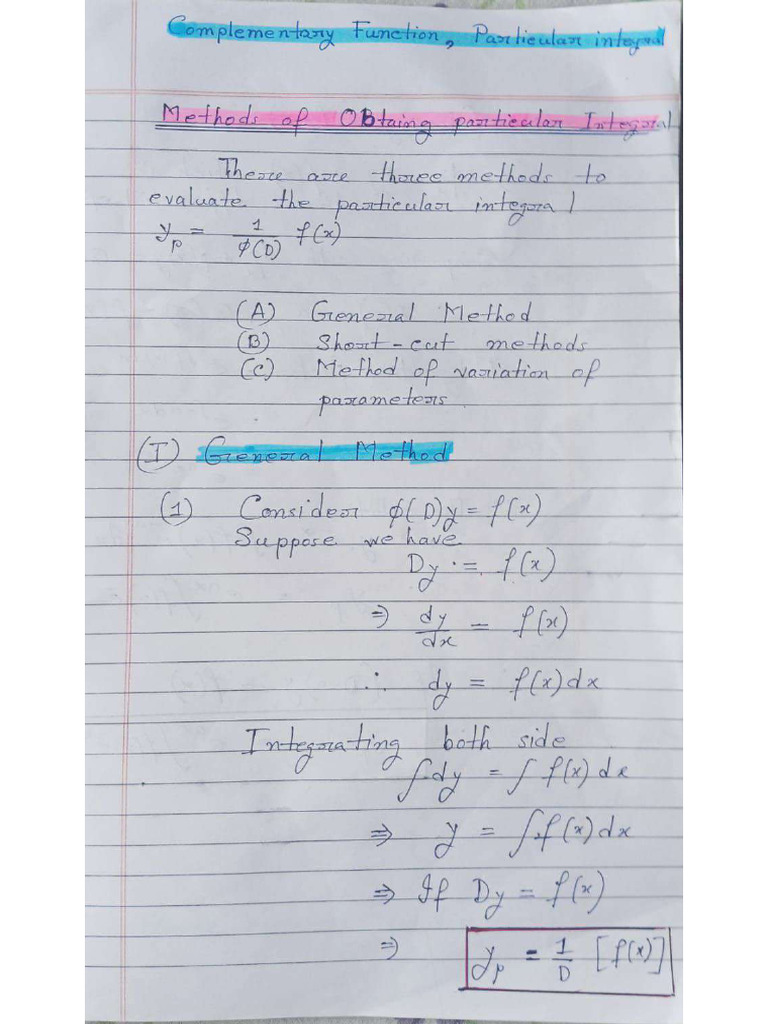 Complementary Function, Particular integral
Methods of OBtaing particular Integral
There are three methods to
evaluate the particular integral
y_p = 1/ϕ(D) f(x)
(A) General Method
(B) Short-cut methods
(C) Method of variation of
parameters.
(I) General Method
(1) Consider ϕ(D)y = f(x)
Suppose we have
Dy = f(x)
⇒ dy/dx = f(x)
∴ dy = f(x)dx
Integrating both side
∫dy = ∫ f(x) dx
⇒ y = ∫f(x)dx
⇒ If Dy = f(x)
⇒ y_p = 1/D [f(x)]